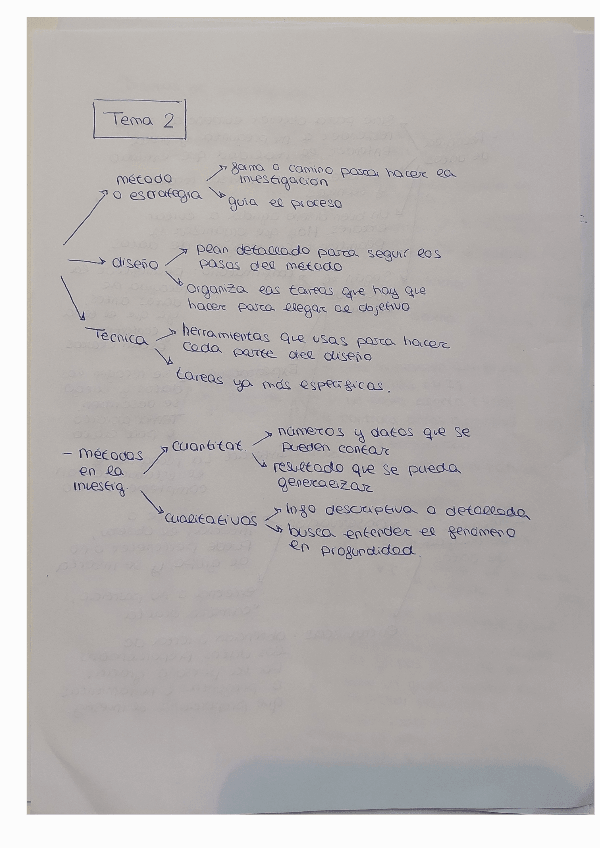 Tema 2
método
o estrategia
forma o camino para hacer la
investigacion
guia el proceso
diseño
plan detallado para seguir los
pasos del método
organiza las tareas que hay que
hacer para llegar al objetivo
Técnica
herramientas que usas para hacer
cada parte del diseño
tareas ya más específicas.
- métodos
en la
investig.
cuantitat
números y datos que se
pueden contar
resultado que se pueda
generalizar
cualitativos
info descriptiva o detallada
busca entender el fenómeno
en profundidad.